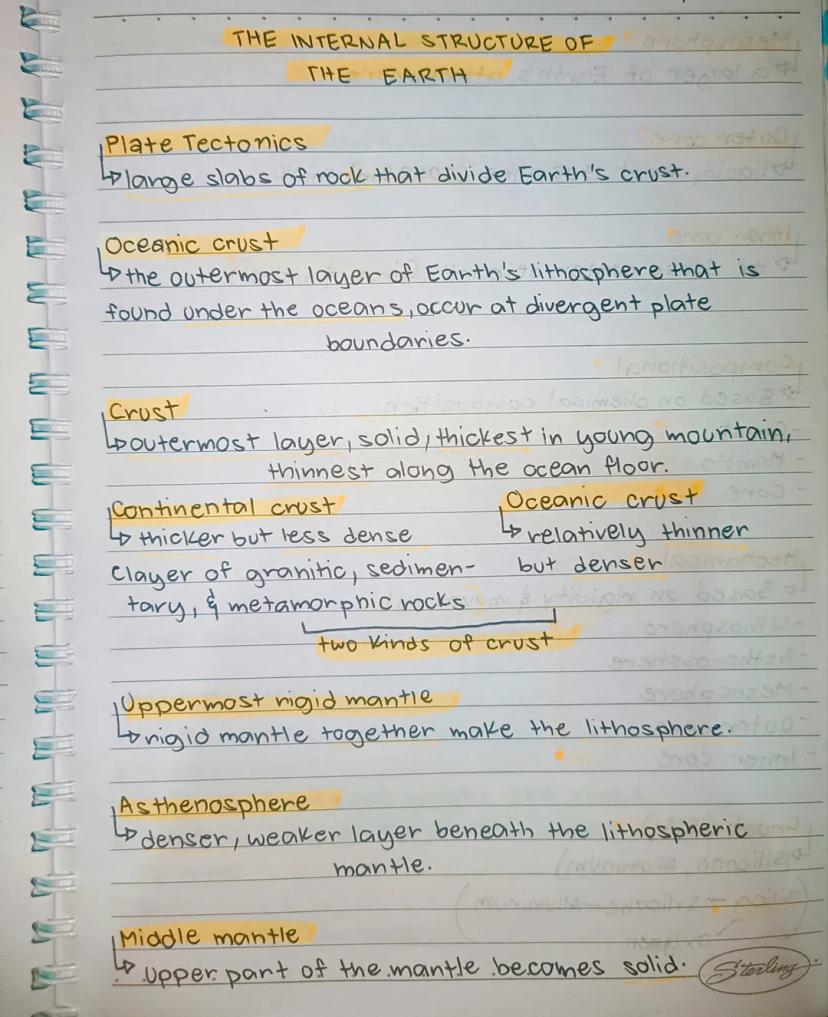 THE INTERNAL STRUCTURE OF
THE EARTH
Plate Tectonics
↳ large slabs of rock that divide Earth's crust.
Oceanic crust
↳ the outermost layer of Earth's lithosphere that is
found under the oceans, occur at divergent plate
boundaries.
Crust
↳ outermost layer, solid, thickest in young mountain,
thinnest along the ocean floor.
Continental crust
↳ thicker but less dense
Clayer of granitic, sedimen-
tary, & metamorphic rocks
Oceanic crust
↳ relatively thinner
but denser
two kinds of crust
Uppermost rigid mantle
↳ rigid mantle together make the lithosphere.
Asthenosphere
↳ denser, weaker layer beneath the lithospheric
mantle.
Middle mantle
↳ Upper part of the mantle becomes solid.
Sterling